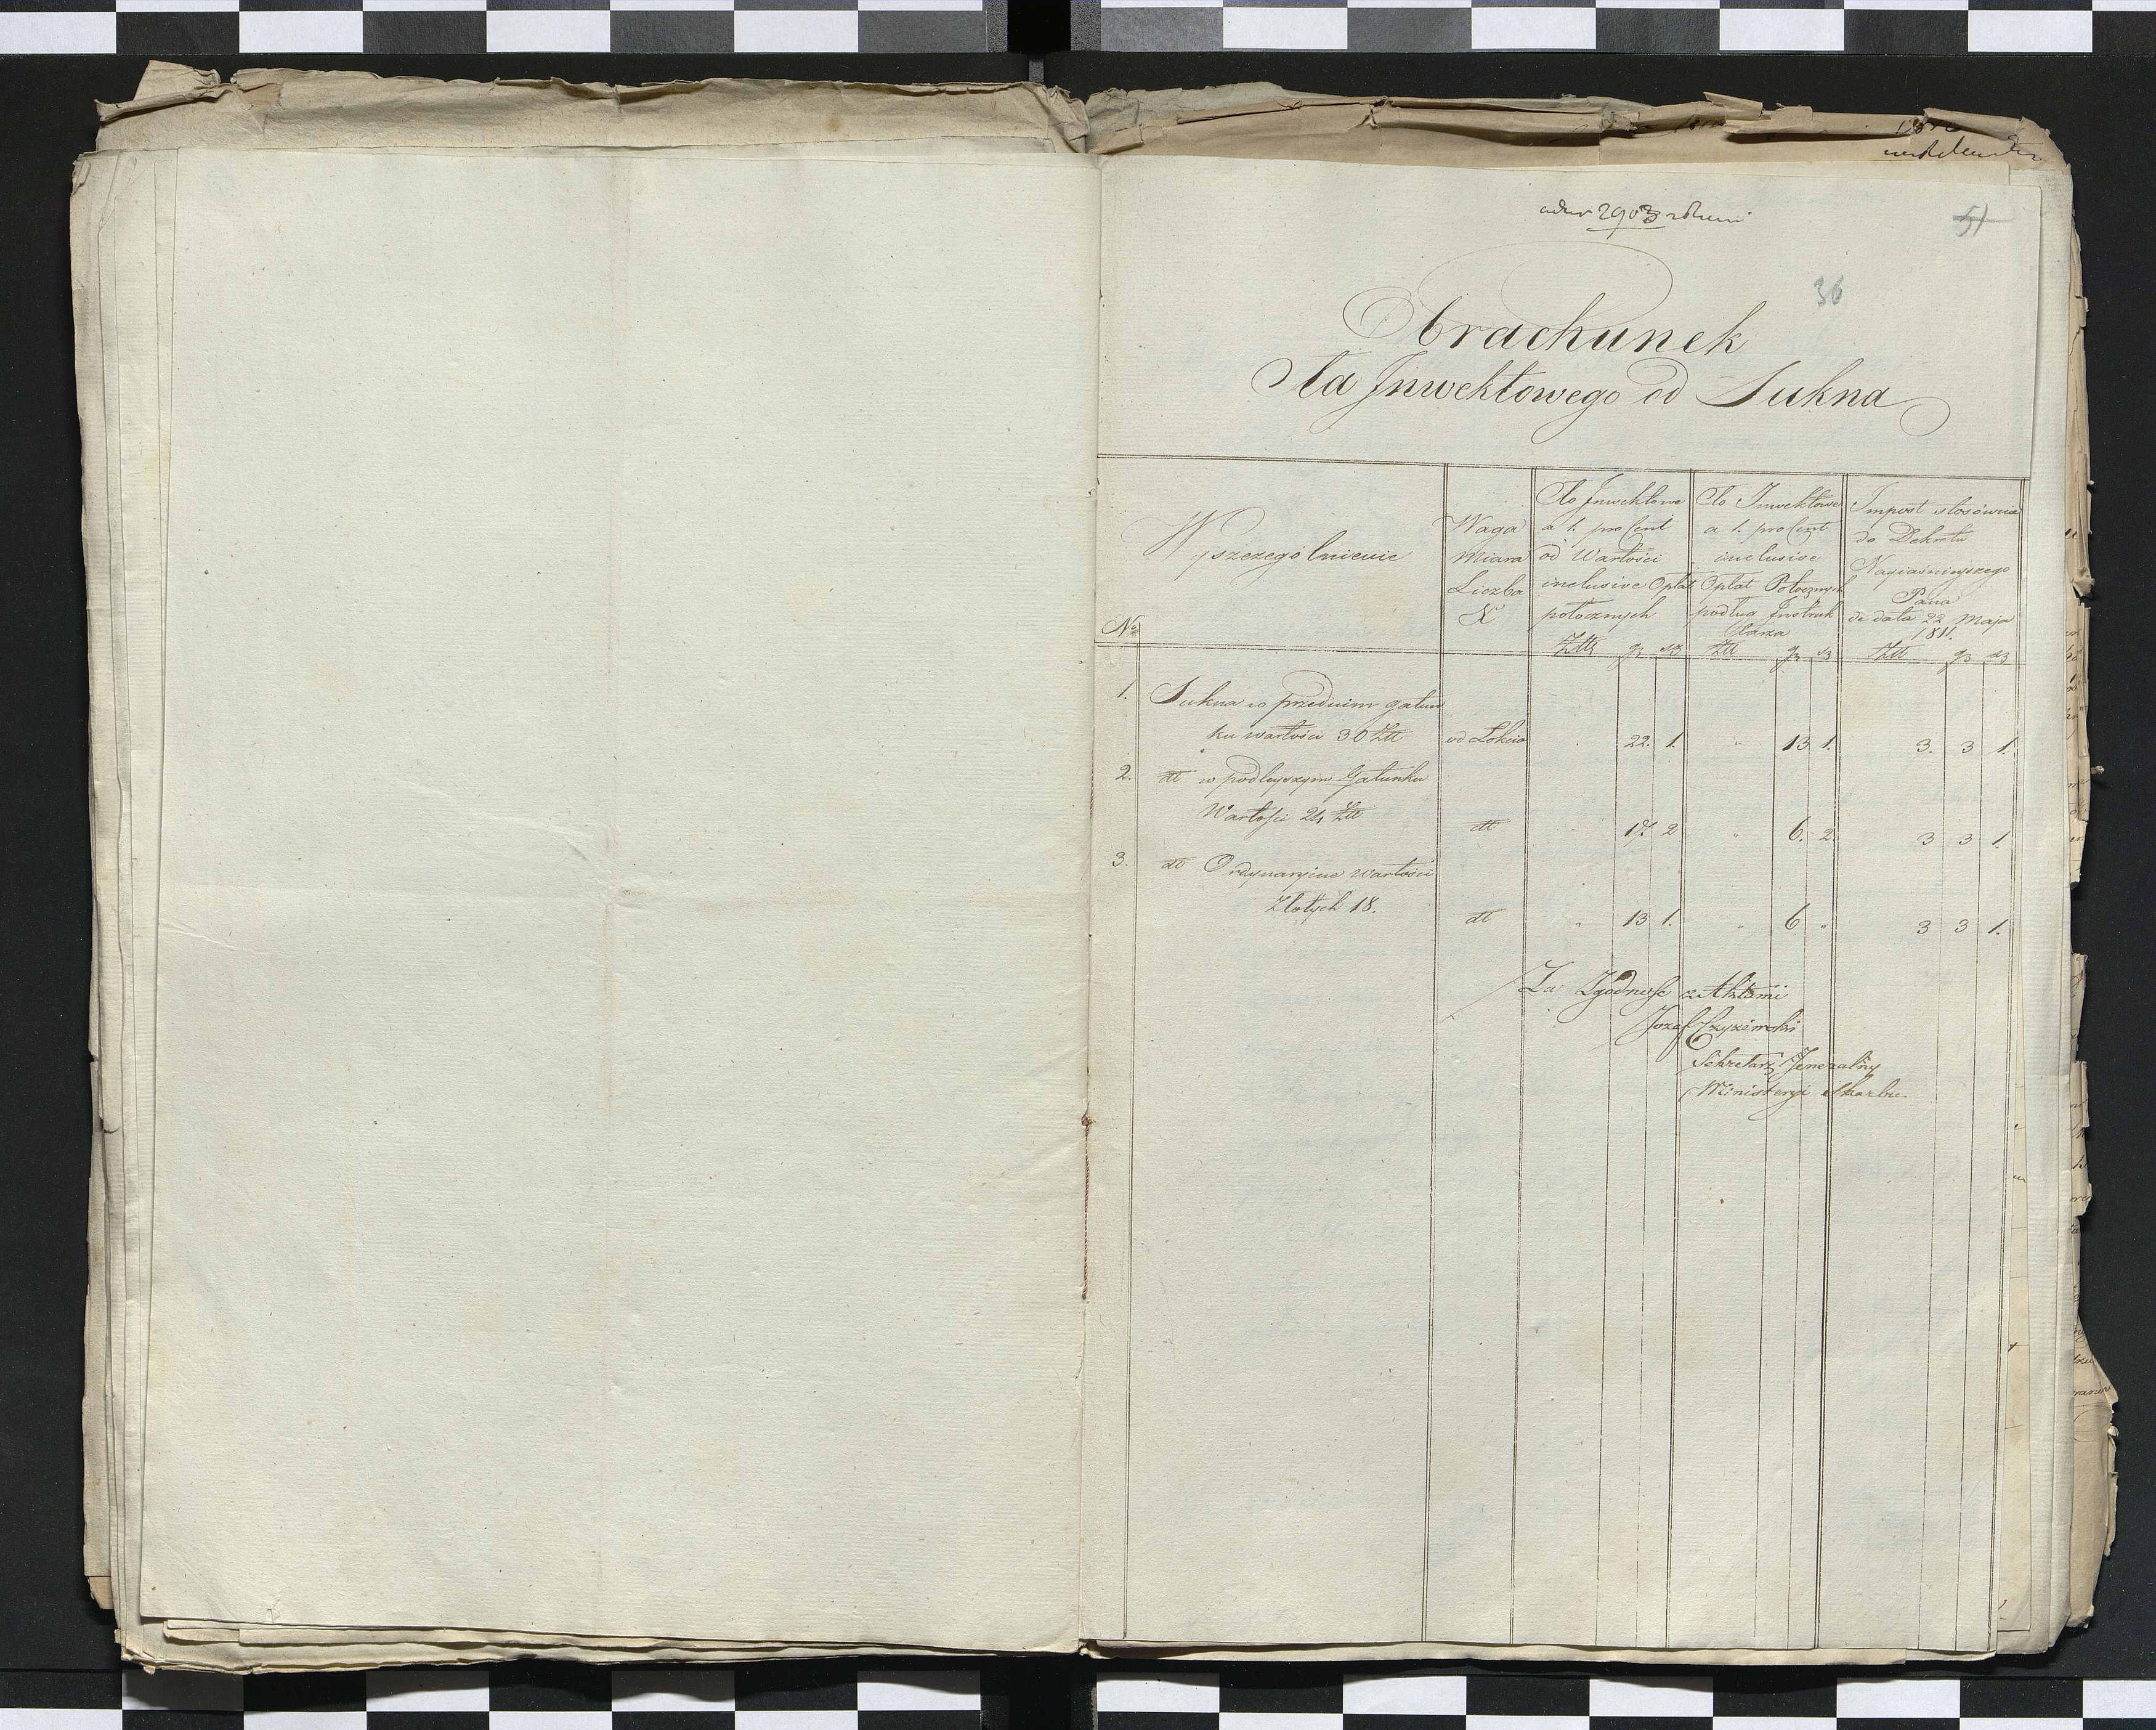 2903
51
36
Obrachunek
Cła Inwektowego od Sukna
No
Wyszczegolnienie
Waga Miara Liczba &
Cło Inwektowe a 1. pro Cent od Wartości inclusive Opłat potocznych
Cło Inwektowe a 1. pro Cent inclusive Opłat Potocznych podług Instruktarza
Impost stosownie do Dekretu Nayiaśnieyszego Pana de data 22 Maja 1811.
Złt gr sz Złt gr sz Złt gr sz
1. Sukna w przednim gatun
ku wartości 30 Złt od Łokcia " 22. 1. " 13 1. 3. 3 1.
2. dtt w podleyszym Gatunku
Wartości 24 Złt dtt " 17. 2 " 6. 2. 3 3 1.
3. dtt Ordynaryine wartości
Złotych 18. dtt " 13 1. " 6 " 3 3 1.
Za Zgodność z Aktami
Jozef
Sekretarz Jeneralny
Ministeryi Skarbu